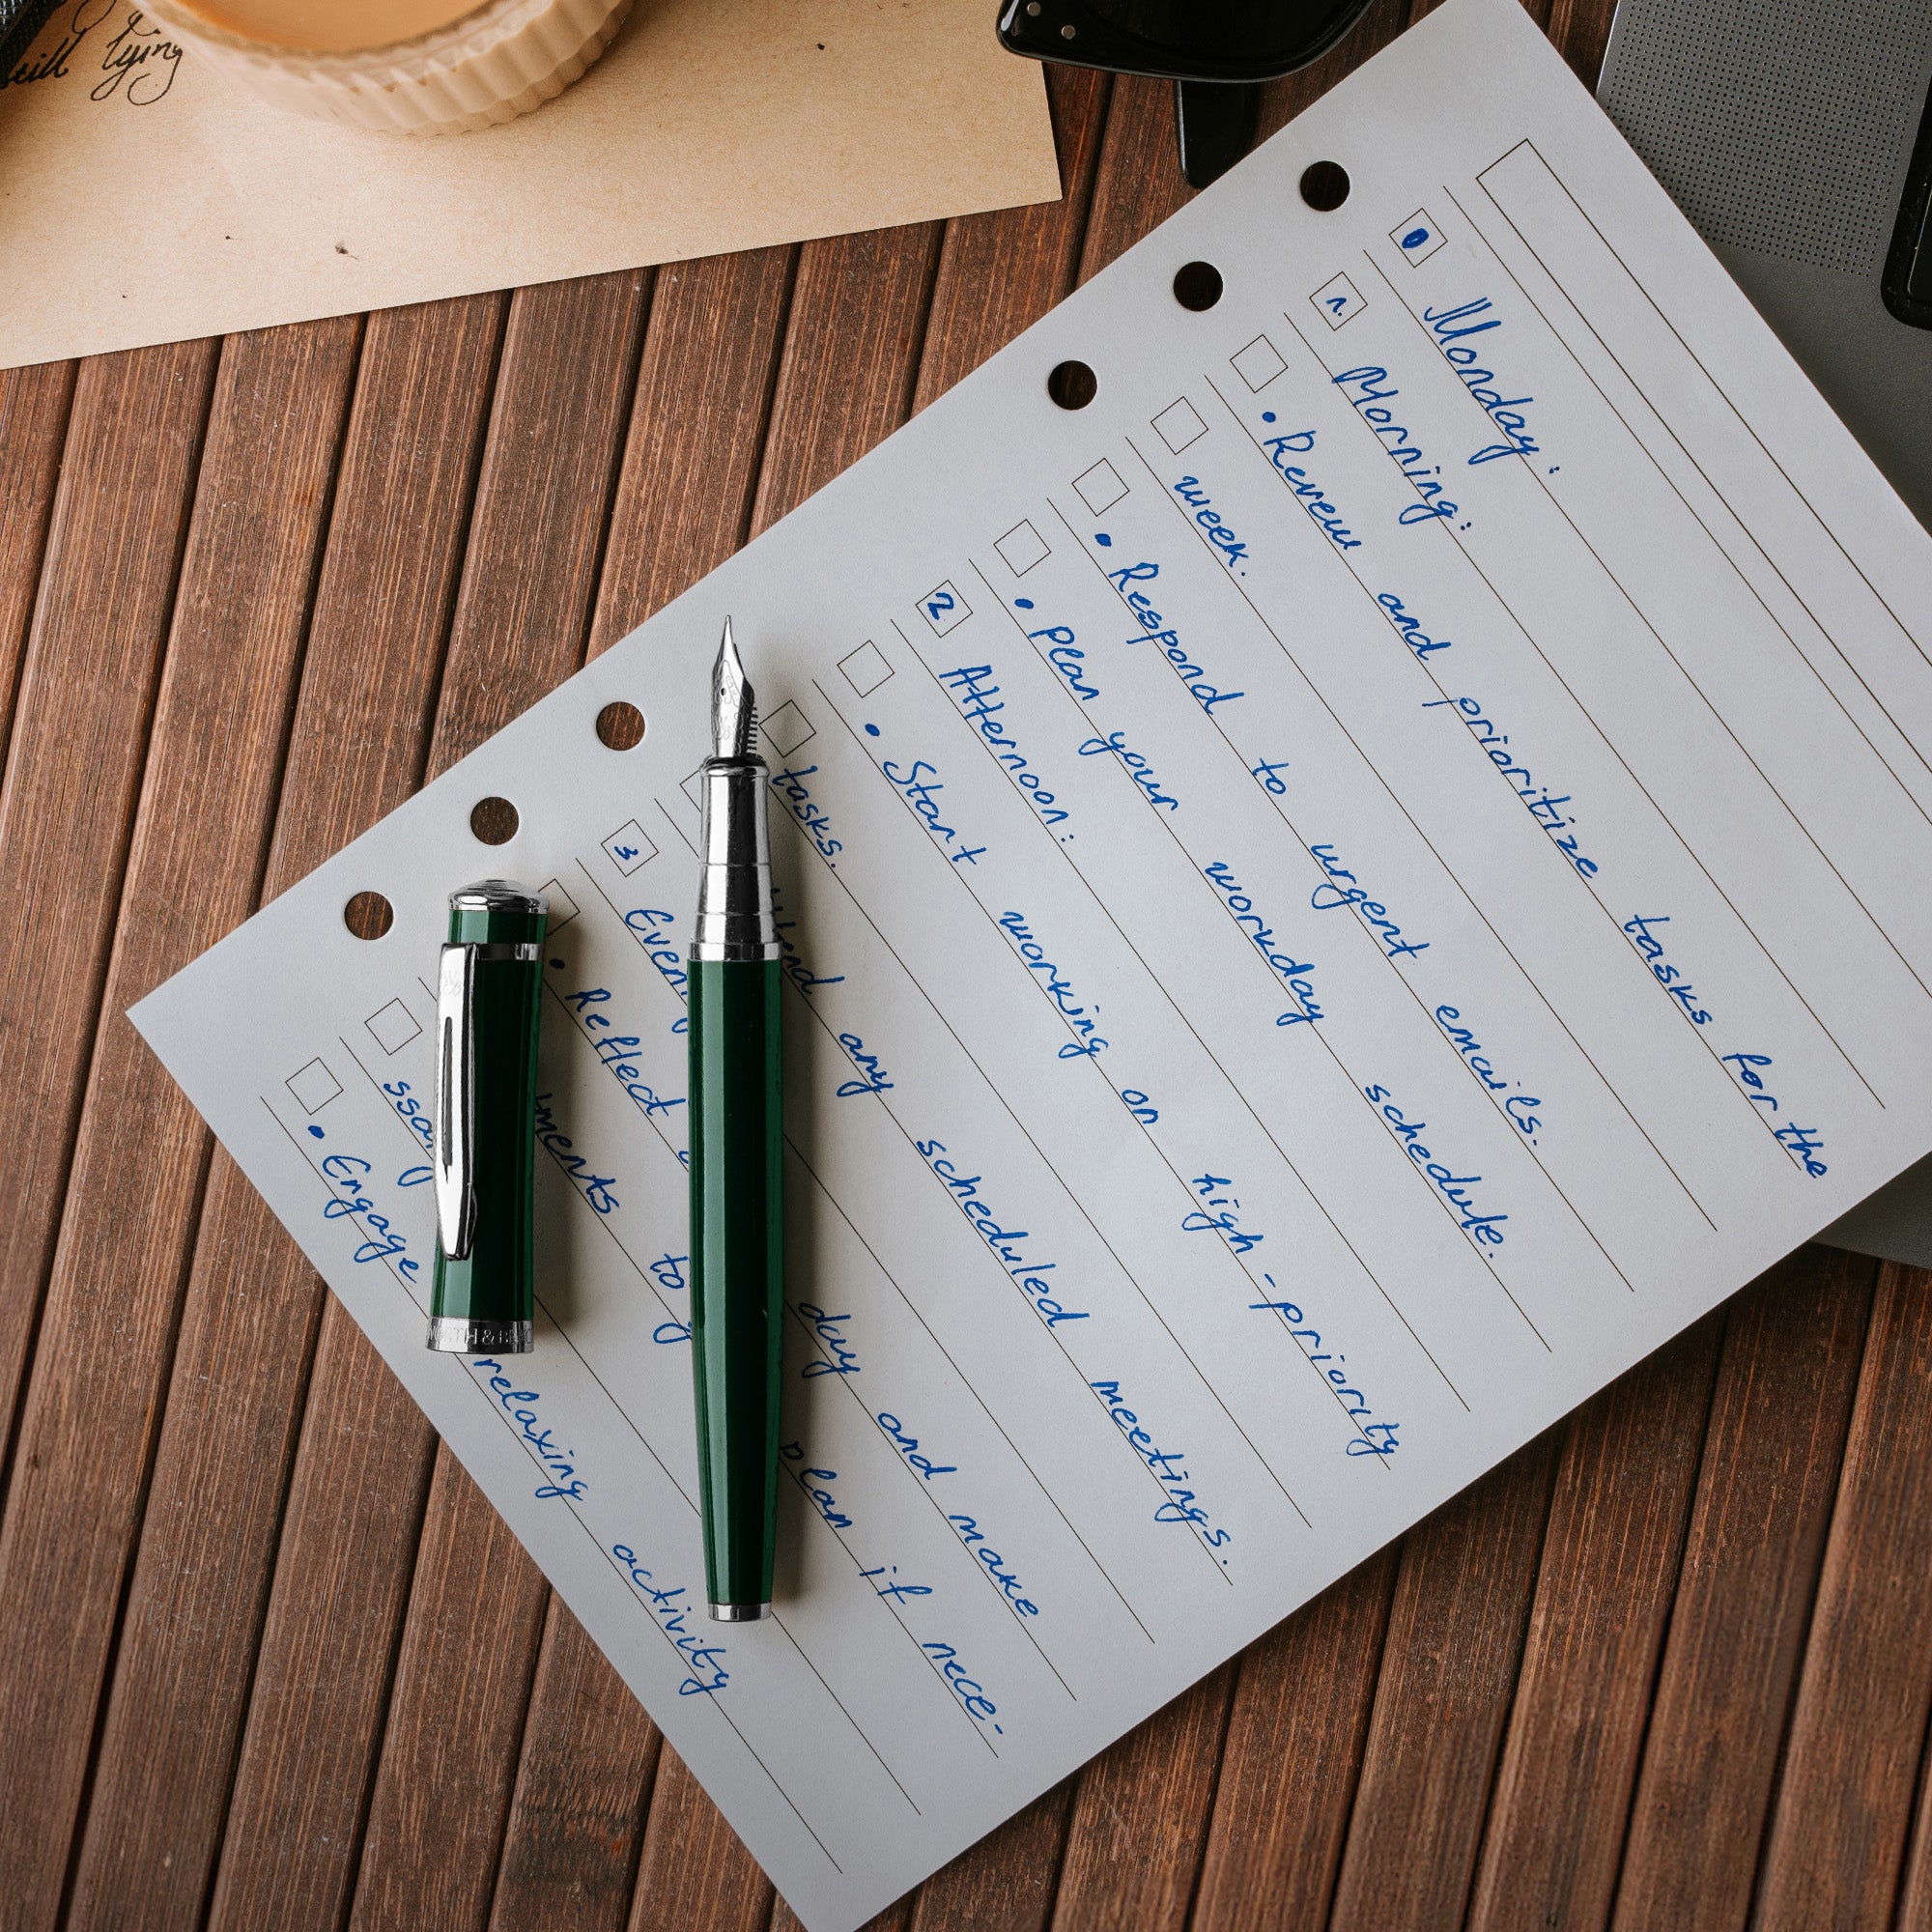 till lying
Monday:
1. Morning:
• Review and prioritize tasks for the
week.
• Respond to urgent emails.
• Plan your workday schedule.
2. Afternoon:
• Start working on high-priority
tasks.
any scheduled meetings.
3 Even
• Reflect day and make
to plan if nece-
ssa
• Engage relaxing activity